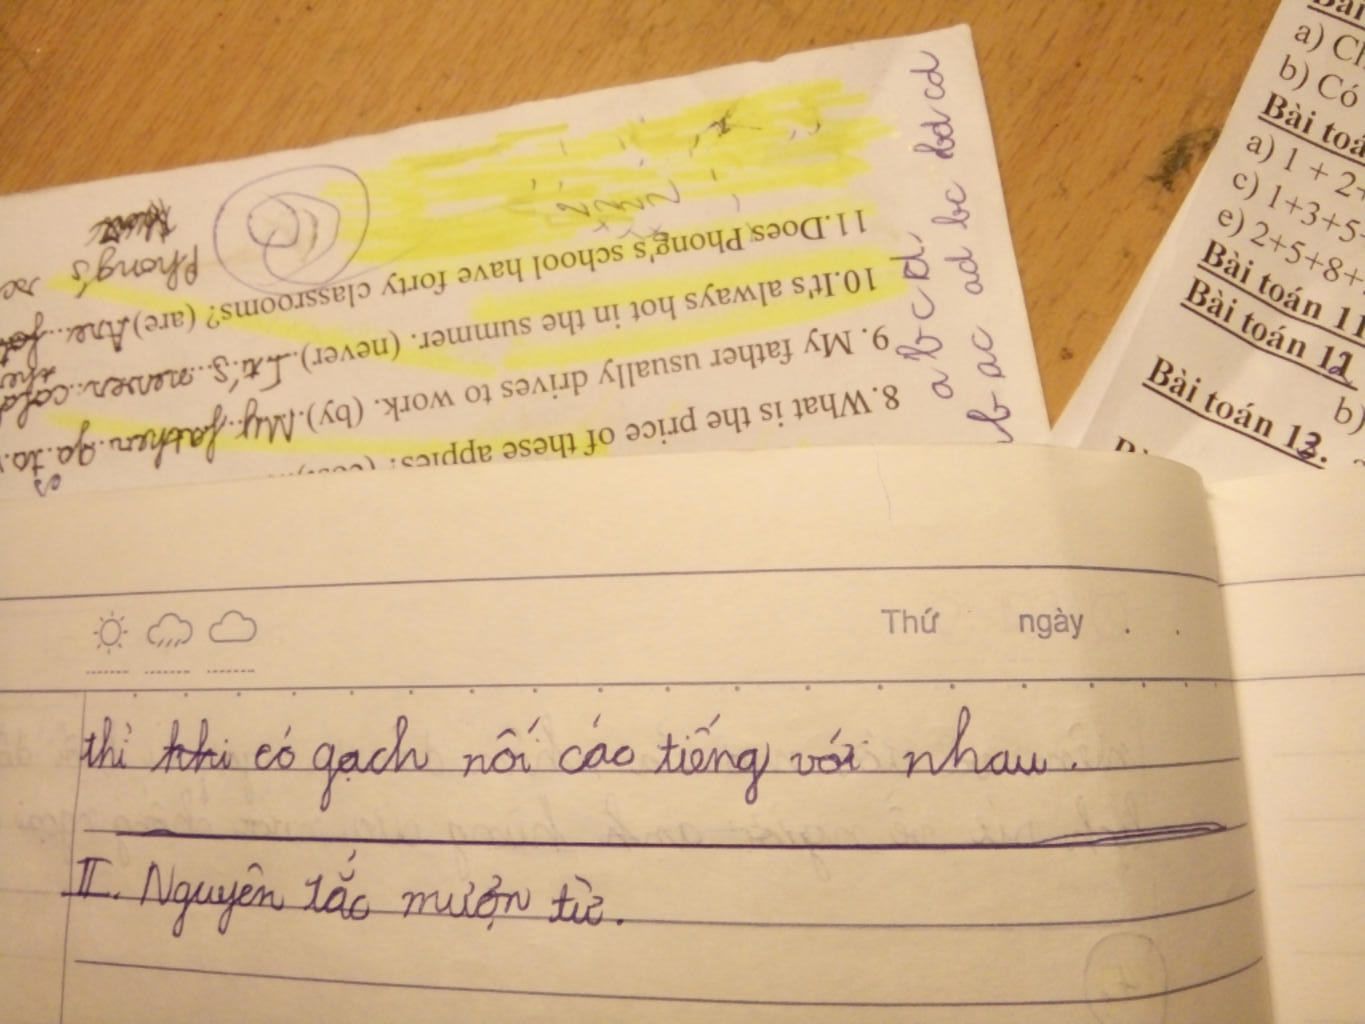 Phong's
11. Does Phong's school have forty classrooms? (are) Are
10. It's always hot in the summer. (never) It's never cold
the
9. My father usually drives to work. (by) My father go to
8. What is the price of these apples?
a b c d
b ac ad bc bd cd
a) Ch
b) Có
Bài toá
a) 1 + 2+
c) 1+3+5+
e) 2+5+8+
Bài toán 11
Bài toán 12
b)
Bài toán 13.
Thứ ngày . .
thì khi có gạch nối các tiếng với nhau.
II. Nguyên tắc mượn từ.